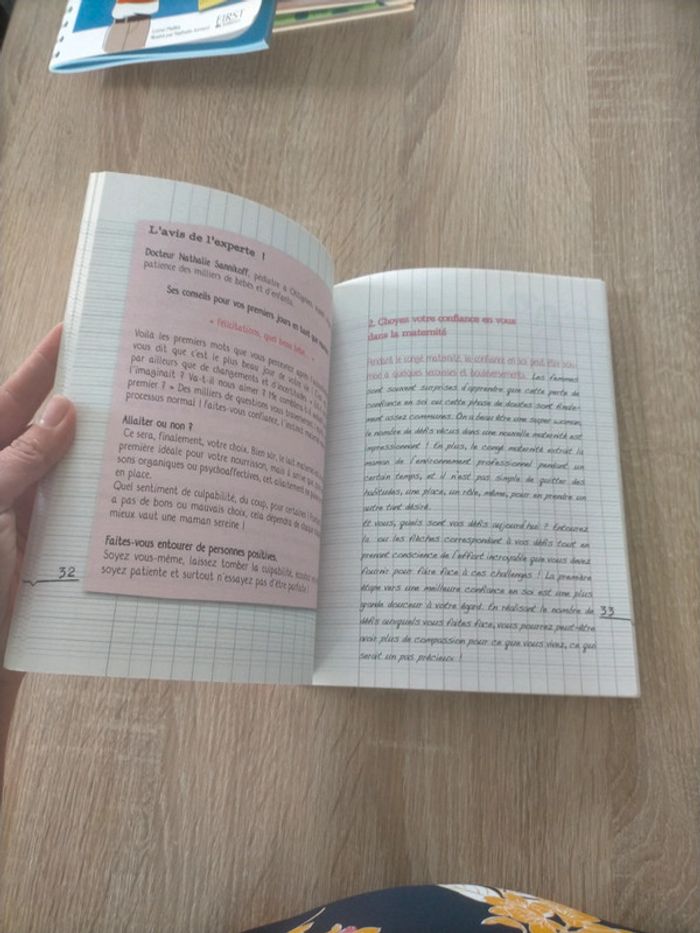 FIRST
L'avis de l'experte !
Docteur Nathalie Sannikoff, pédiatre à
patience des milliers de bébés et d'enfants.
Ses conseils pour vos premiers jours en tant que
« Félicitations, quel beau bébé... »
Voilà les premiers mots que vous percevrez après
vous dit que c'est le plus beau jour de votre vie !
par ailleurs que de changements et d'incertitudes !
l'imaginait ? Va-t-il nous aimer ? Me
premier ? » Des milliers de questions vous traversent,
processus normal ! Faites-vous confiance, l'instinct
Allaiter ou non ?
Ce sera, finalement, votre choix. Bien sûr, le lait maternel
première idéale pour votre nourrisson, mais il arrive que
sons organiques ou psychoaffectives, cet allaitement ne
en place.
Quel sentiment de culpabilité, du coup, pour certaines !
a pas de bons ou mauvais choix, cela dépendra de chaque
mieux vaut une maman sereine !
Faites-vous entourer de personnes positives.
Soyez vous-même, laissez tomber la culpabilité,
soyez patiente et surtout n'essayez pas d'être parfaite !
32
2. Choyez votre confiance en vous
dans la maternité
Pendant le congé maternité, la confiance en soi peut être sou-
mise à quelques secousses et bouleversements. Les femmes
sont souvent surprises d'apprendre que cette perte de
confiance en soi ou cette phase de doutes sont finale-
ment assez communes. On a beau être une super woman,
le nombre de défis vécus dans une nouvelle maternité est
impressionnant ! En plus, le congé maternité extrait la
maman de l'environnement professionnel pendant un
certain temps, et il n'est pas simple de quitter des
habitudes, une place, un rôle, même, pour en prendre un
autre tant désiré.
Et vous, quels sont vos défis aujourd'hui ? Entourez
la ou les flèches correspondant à vos défis tout en
prenant conscience de l'effort incroyable que vous devez
fournir pour faire face à ces challenges ! La première
étape vers une meilleure confiance en soi est une plus
grande douceur à votre égard. En réalisant le nombre de
défis auxquels vous faites face, vous pourrez peut-être
avoir plus de compassion pour ce que vous vivez, ce qui
serait un pas précieux !
33